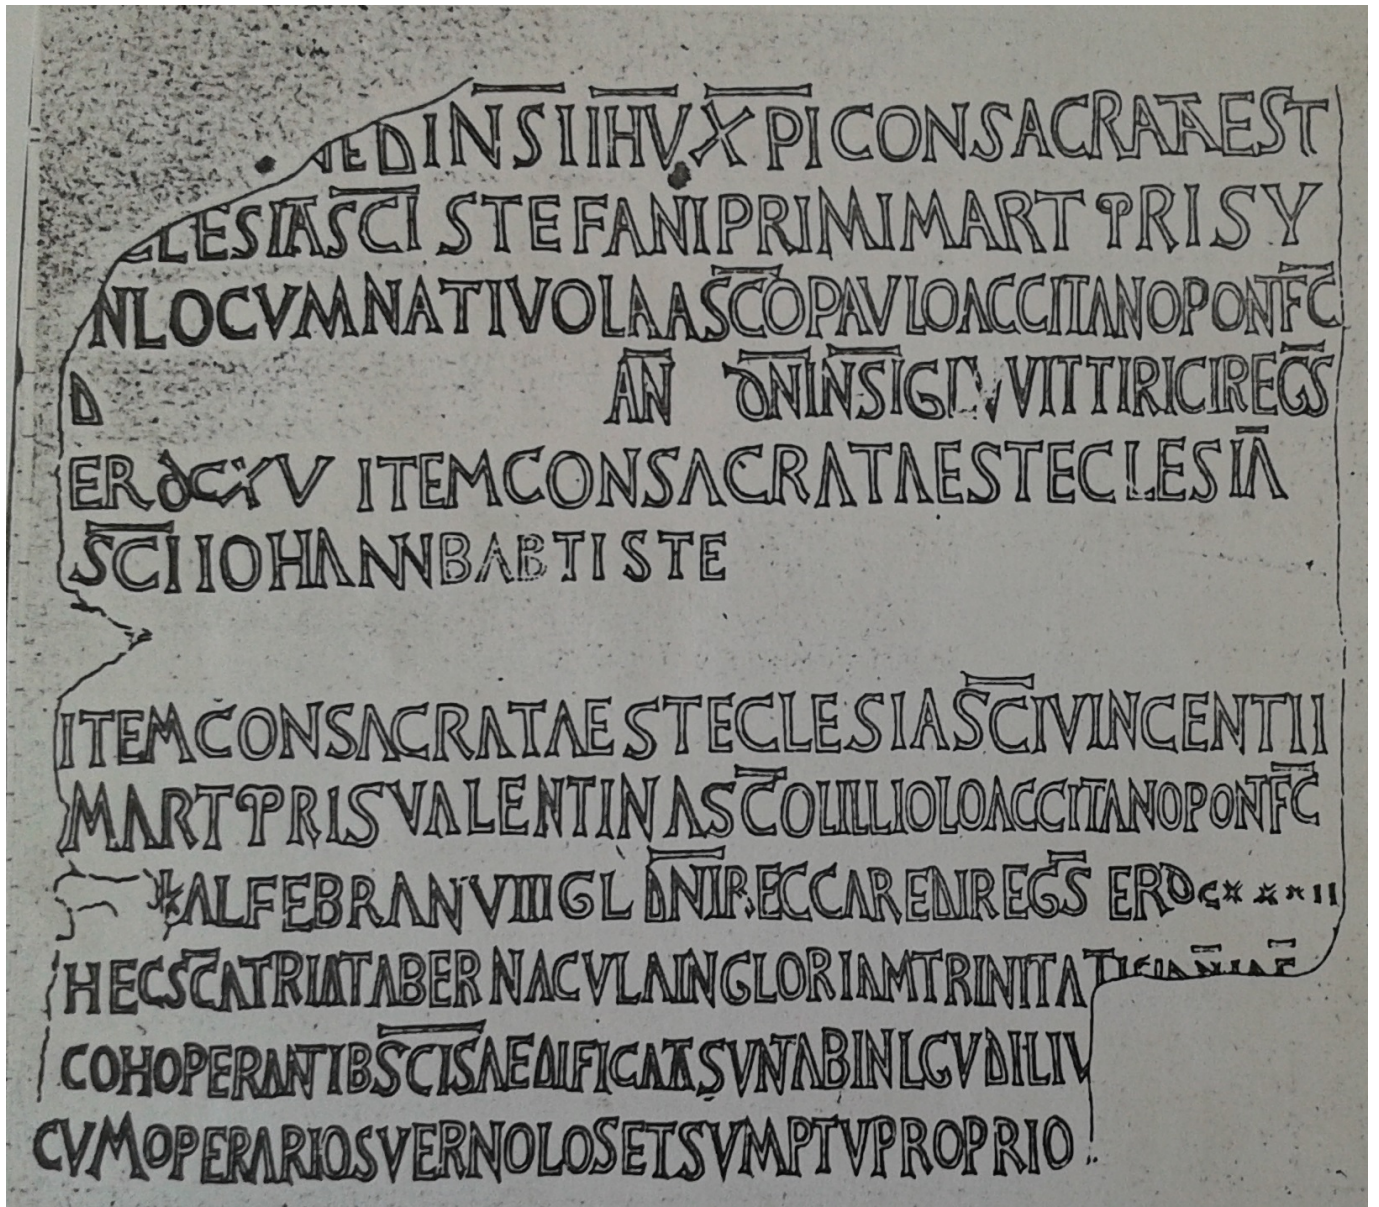 NE DI NSI IHV XPI CONSACRATA EST
CLESIA SCI STEFANI PRIMI MARTYRIS Y
N LOCVM NATIVOLA A SCO PAVLO ACCITANO PONFC
D AN DNI NSI GL VVITTIRICI REGS
ER DCXV ITEM CONSACRATA EST ECLESIA
SCI IOHANN BABTISTE
ITEM CONSACRATA EST ECLESIA SCI VINCENTII
MARTYRIS VALENTINA SCO LILLIOLO ACCITANO PONFC
KAL FEBR AN VIII GL DNI RECCAREDI REGS ER DCXXXII
HEC SCA TRIA TABERNACVLA IN GLORIAM TRINITATIS
COHOPERANTIB SCIS AEDIFICATA SVNT AB INL GVDILIV
CVM OPERARIOS VERNOLOS ET SVMPTV PROPRIO